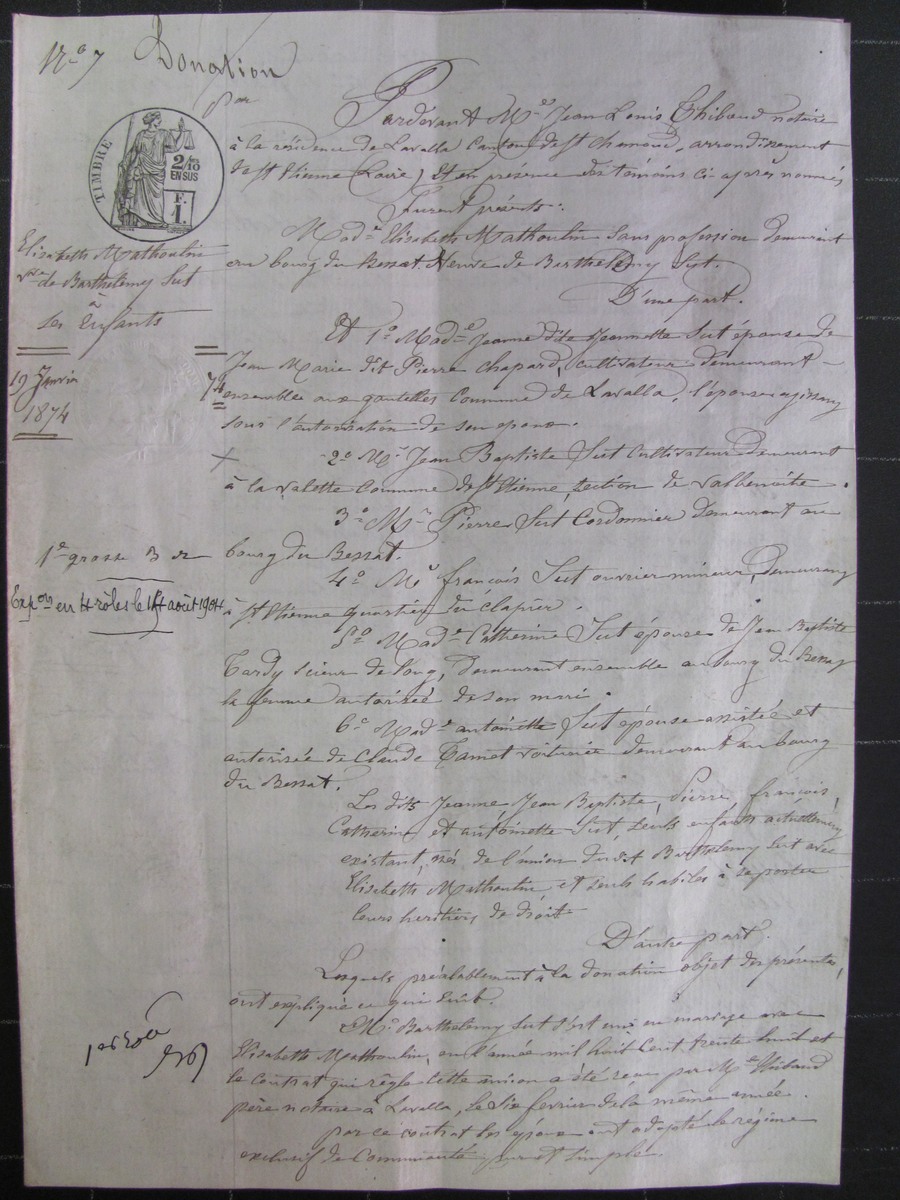 N.º 7 Donation
par
TIMBRE
2/10
EN SUS
F.
1.
Elisabeth Mathoulin
vve de Barthelemy Sut
à
ses Enfants
19 Janvier 74
1874
1e grosse 3 r
Expon en 4 rôles le 14 août 1904
1er rôle
Pardevant Me Jean Louis Thibaud notaire
à la résidence de Lavalla Canton de St Chamond, arrondissement
de St Etienne (Loire) Et en présence des témoins ci après nommés
Furent présents :
Made Elisabeth Mathoulin sans profession demeurant
au bourg du Bessat, Veuve de Barthelemy Sut.
D'une part.
Et 1º Made Jeanne dite Jeannette Sut épouse de
Jean Marie dit Pierre Chapard, cultivateur demeurant
ensemble aux gautelles Commune de Lavalla, l'épouse agissant
sous l'autorisation de son epoux.
2º Mr Jean Baptiste Sut Cultivateur demeurant
à la valette Commune de St Etienne, section de Valbenoite.
3º Mr Pierre Sut Cordonnier demeurant au
bourg du Bessat.
4º Mr françois Sut ouvrier mineur, demeurant
à St Etienne quartier du clapier.
5º Made Catherine Sut épouse de Jean Baptiste
Tardy scieur de long, demeurant ensemble au bourg du Bessat
la femme autorisée de son mari.
6º Made antoinette Sut épouse assistée et
autorisée de Claude Tamet voiturier demeurant au bourg
du Bessat.
Les dits Jeanne, Jean Baptiste, Pierre, françois,
Catherine et antoinette Sut, seuls enfants actuellement
existant, nés de l'union du dit Barthelemy Sut avec
Elisabeth Mathoulin et seuls habiles à se porter
leurs heritiers de droit
D'autre part.
Lesquels préalablement à la donation objet des présentes,
ont expliqué ce qui suit.
Mr Barthelemy Sut s'est uni en mariage avec
Elisabeth Mathoulin, en l'année mil huit cent trente huit et
le contrat qui règle cette union a été reçu par Me Thibaud
père notaire à Lavalla, le six fevrier de la même année.
par ce contrat les époux ont adopté le régime
exclusif de Communauté pur et simple.